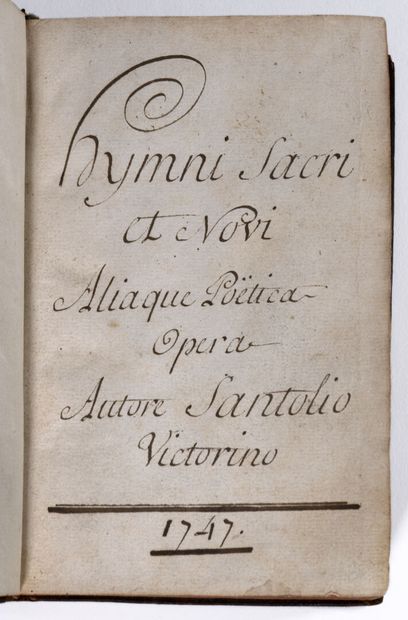 Hymni Sacri
et Novi
Aliaque Poëtica
Opera
Autore Santolio
Victorino
1747.